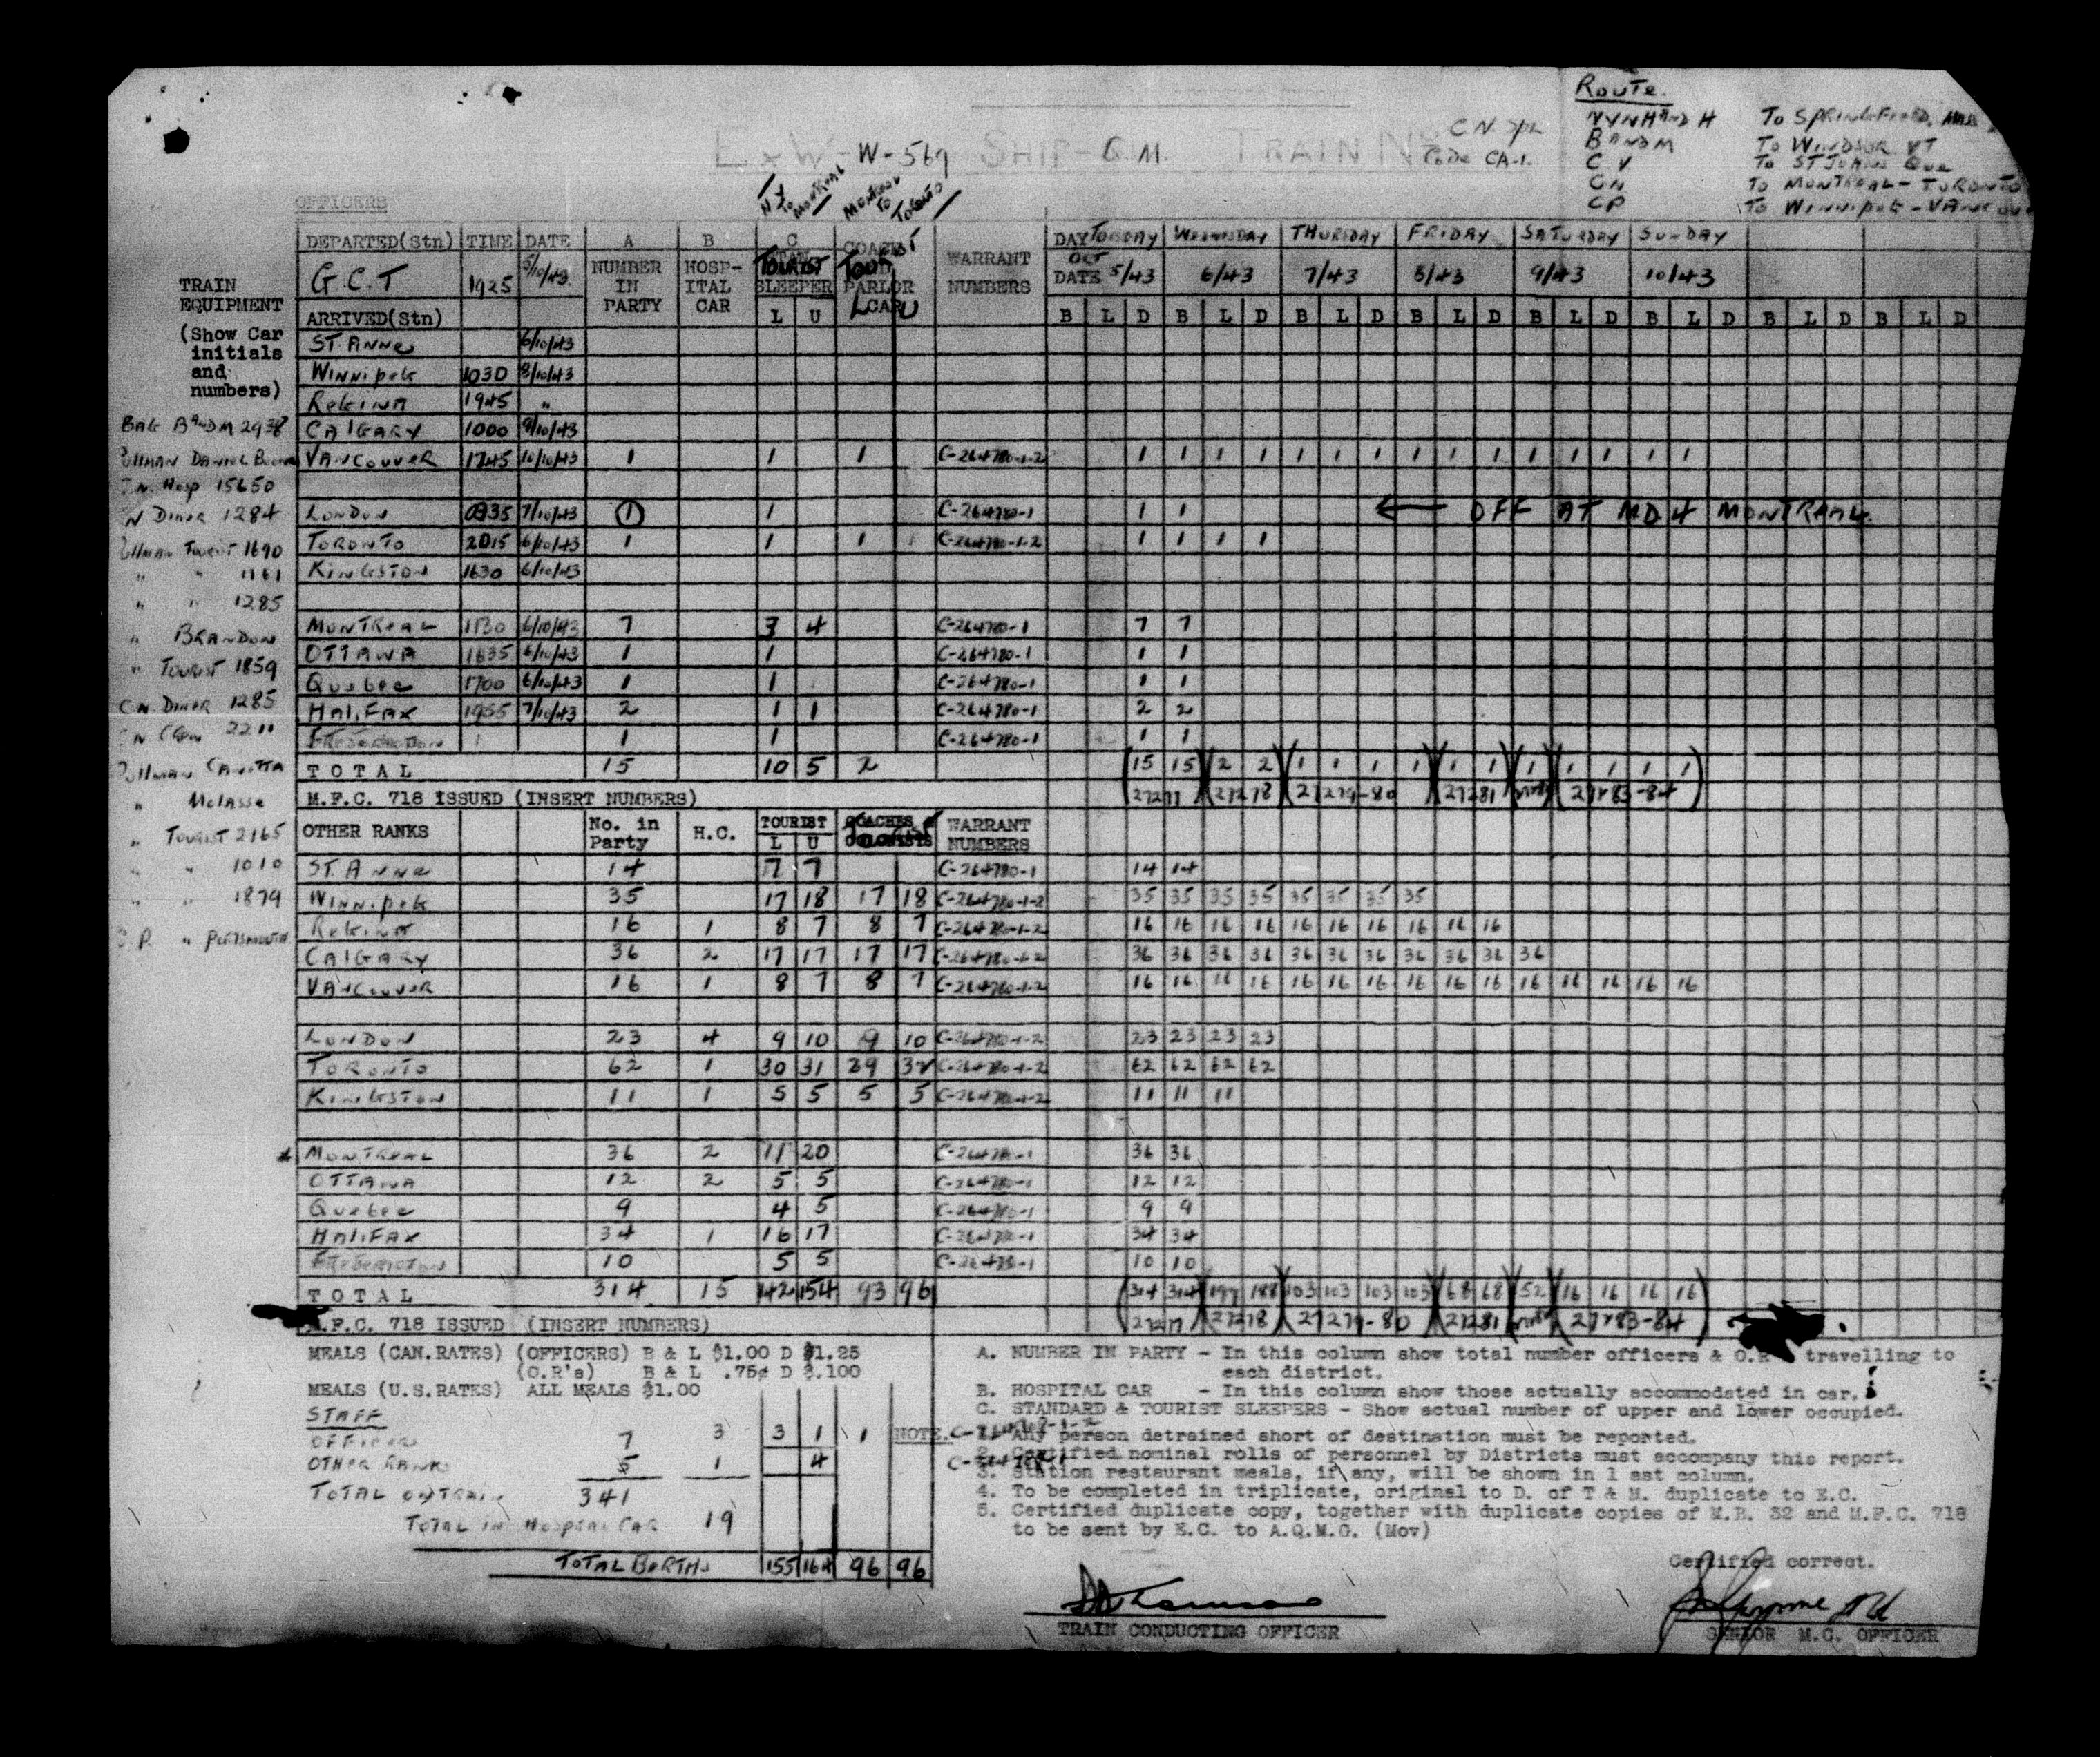 Route.
NYNH AND H To SPRINGFIELD, MASS
B AND M To WINDSOR VT
C V To ST JOHNS Que
CN To MONTREAL - TORONTO
CP To WINNIPEG - VANCOUVER
Ex W- W-569 SHIP- Q.M. TRAIN No C.N. Spl
Code CA-1.
N.Y. To MONTREAL MONTREAL To TORONTO
OFFICERS
TRAIN EQUIPMENT
(Show Car initials and numbers)
BAG B AND M 2938
PULLMAN DANIEL BOONE
C.N. Hosp 15650
CN Diner 1284
PULLMAN TOURIST 1690
" " 1161
" " 1285
" BRANDON
" TOURIST 1859
C.N. Diner 1285
2211
PULLMAN
" Molasse
" TOURIST 2165
" " 1010
" " 1879
C.P. " PORTSMOUTH
DEPARTED(Stn) TIME DATE A B C WARRANT NUMBERS DAY TUESDAY WEDNESDAY THURSDAY FRIDAY SATURDAY SUNDAY
G.C.T 1925 5/10/43 NUMBER IN PARTY HOSP-ITAL CAR TOURIST SLEEPER PARLOR CAR DATE OCT 5/43 6/43 7/43 8/43 9/43 10/43
ARRIVED(Stn) L U L U B L D B L D B L D B L D B L D B L D B L D B L D
ST. ANNE 6/10/43
WINNIPEG 1030 8/10/43
REGINA 1945 "
CALGARY 1000 9/10/43
VANCOUVER 1745 10/10/43 1 1 1 C-264780-1-2 1 1 1 1 1 1 1 1 1 1 1 1 1 1 1
LONDON 0935 7/10/43 1 1 C-264780-1 1 1 ← OFF AT MD 4 MONTREAL.
TORONTO 2015 6/10/43 1 1 1 C-264780-1-2 1 1 1 1
KINGSTON 1630 6/10/43
MONTREAL 1130 6/10/43 7 3 4 C-264780-1 7 7
OTTAWA 1635 6/10/43 1 1 C-264780-1 1 1
Quebec 1700 6/10/43 1 1 C-264780-1 1 1
HALIFAX 1955 7/10/43 2 1 1 C-264780-1 2 2
FREDERICTON 1 1 C-264780-1 1 1
TOTAL 15 10 5 2 (15 15)(2 2)(1 1 1 1)(1 1)(1)(1 1 1 1)
M.F.C. 718 ISSUED (INSERT NUMBERS) 27277 27278 27279-80 27281 27283-84
OTHER RANKS No. in Party H.C. TOURIST L U COACHES WARRANT NUMBERS
ST. ANNE 14 7 7 C-264780-1 14 14
WINNIPEG 35 17 18 17 18 C-264780-1-2 35 35 35 35 35 35 35 35
REGINA 16 1 8 7 8 7 C-264780-1-2 16 16 16 16 16 16 16 16 16 16
CALGARY 36 2 17 17 17 17 C-264780-1-2 36 36 36 36 36 36 36 36 36 36 36
VANCOUVER 16 1 8 7 8 7 C-264780-1-2 16 16 16 16 16 16 16 16 16 16 16 16 16 16 16
LONDON 23 4 9 10 9 10 C-264780-1-2 23 23 23 23
TORONTO 62 1 30 31 29 32 C-264780-1-2 62 62 62 62
KINGSTON 11 1 5 5 5 5 C-264780-1-2 11 11 11
MONTREAL 36 2 11 20 C-264780-1 36 36
OTTAWA 12 2 5 5 C-264780-1 12 12
Quebec 9 4 5 C-264780-1 9 9
HALIFAX 34 1 16 17 C-264780-1 34 34
FREDERICTON 10 5 5 C-264780-1 10 10
TOTAL 314 15 142 154 93 96 (314 314)(199 188)(103 103 103 103)(68 68)(52)(16 16 16 16)
M.F.C. 718 ISSUED (INSERT NUMBERS) 27277 27278 27279-80 27281 27283-84
MEALS (CAN.RATES) (OFFICERS) B & L $1.00 D $1.25
(O.R's) B & L .75¢ D $.100
MEALS (U.S.RATES) ALL MEALS $1.00
STAFF
OFFICERS 7 3 3 1 1
OTHER RANKS 5 1 4
TOTAL ON TRAIN 341
TOTAL IN HOSPITAL CAR 19
TOTAL BERTHS 155 164 96 96
A. NUMBER IN PARTY - In this column show total number officers & O.R's travelling to each district.
B. HOSPITAL CAR - In this column show those actually accommodated in car.
C. STANDARD & TOURIST SLEEPERS - Show actual number of upper and lower occupied.
NOTE. 1. Any person detrained short of destination must be reported.
2. Certified nominal rolls of personnel by Districts must accompany this report.
3. Station restaurant meals, if any, will be shown in l ast column.
4. To be completed in triplicate, original to D. of T & M. duplicate to E.C.
5. Certified duplicate copy, together with duplicate copies of M.B. 32 and M.F.C. 718
to be sent by E.C. to A.Q.M.G. (Mov)
Certified correct.
TRAIN CONDUCTING OFFICER
SENIOR M.C. OFFICER